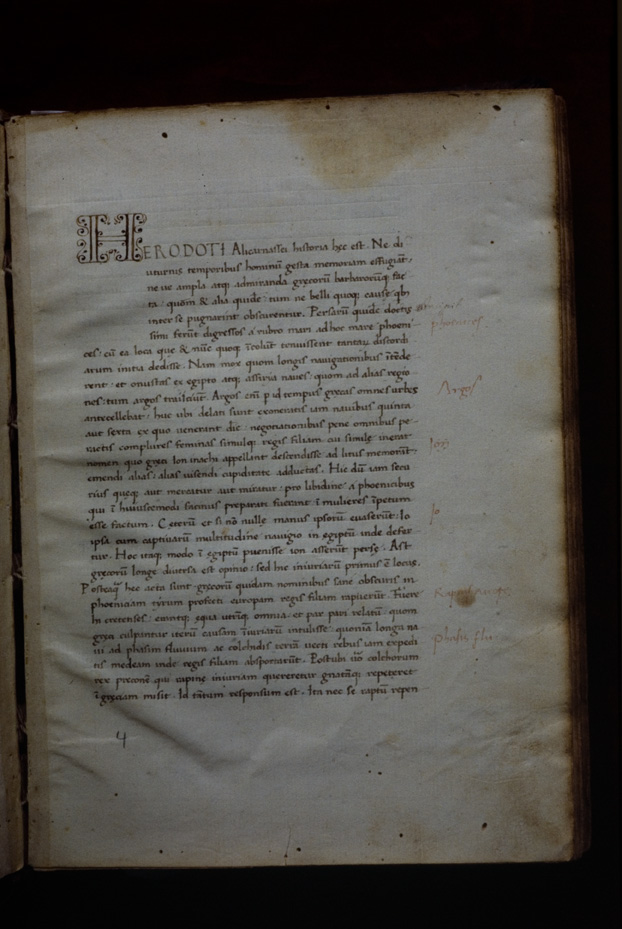 HERODOTI Alicarnassei historia hec est. Ne di
uturnis temporibus hominū gesta memoriam effugiāt,
ne ue ampla atq; admiranda grecorū barbarorūq; fac
ta: quom & alia quidē: tum ne belli quoq; cause qbꝰ
inter se pugnarint obscurentur. Persarū quidē doctis
simi ferūt digressos a rubro mari ad hoc mare phoeni
ces: cū ea loca que & nūc quoq; īcolūt tenuissent tantaꝝ discordi
arum initia dedisse. Nam mox quom longis nauigationibus ītēde
rent: et onustas ex egipto atq; assiria naues: quom ad alias regio
nes: tum argos traiciūt. Argos enī p id tempus grecas omnes urbes
antecellebat: huc ubi delati sunt exoneratis iam nauibus quinta
aut sexta ex quo uenerant die: negotiationibus pene omnibus pe
ractis complures feminas simulq; regis filiam cui simile inerat
nomen quo greci Ion inachi appellint descendisse ad litus memorāt:
emendi alias: alias uisendi cupiditate adductas. Hic dū iam secu
rius queq; aut mercatur aut miratur: pro libidine a phoenicibus
qui ī huiuscemodi facinus preparati fuerant ī mulieres īpetum
esse factum. Ceterū et si nō nulle manus ipsorū euaserūt: Io
ipsa cum captiuarū multitudine nauigio in egiptū inde defer
tur. Hoc itaq; modo ī egiptū puenisse ion asserūt perse. Ast
grecorū longe diuersa est opinio: sed hic iniuriarū primus ē locus.
Posteaq̄ hec acta sunt grecorū quidam nominibus sane obscuris in
phoeniciam tyrum profecti europam regis filiam rapuerūt. Fuere
hi cretenses: eaintq; equa utriq; omnia: et par pari relatū: quom
greci culpantur iterū causam īiuriarū intulisse: quoniā longa na
ui ad phasim fluuium ac colchidis terrā uecti rebus iam expedi
tis medeam inde regis filiam absportarūt. Postubi uō colchorum
rex preconē qui rapine iniuriam quereretur gnatāq; repeteret
ī greciam misit. Id tātum responsum est. Ita nec se raptū repen
phoenices
Argos
Ion
Io
Phasis flu.
4